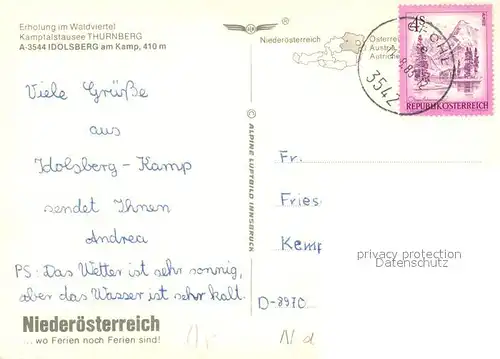 Erholung im Waldviertel
Kamptalstausee THURNBERG
A-3544 IDOLSBERG am Kamp, 410 m
Niederösterreich
Österre
Austri
Autriche
3542
4 S
REPUBLIK ÖSTERREICH
Viele Grüße
aus
Idolsberg - Kamp
sendet Ihnen
Andrea
PS: Das Wetter ist sehr sonnig,
aber das Wasser ist sehr kalt.
Niederösterreich
... wo Ferien noch Ferien sind!
© ALPINE LUFTBILD INNSBRUCK
Fr.
Fries
Kemp
privacy protection
Datenschutz
D-8970